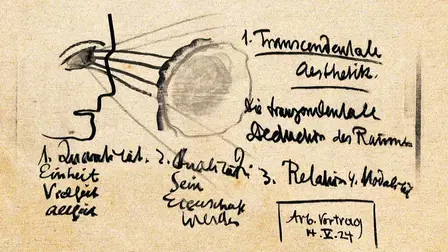 1. Transcendentale
Aesthetik.
Die transzendentale
Deduction des Raumes
1. Quantität. 2. Qualität? 3. Relation 4. Modalität
Einheit
Vielheit
Allheit
Sein
Eigenschaft
Werden
Arb. Vortrag
V. 24